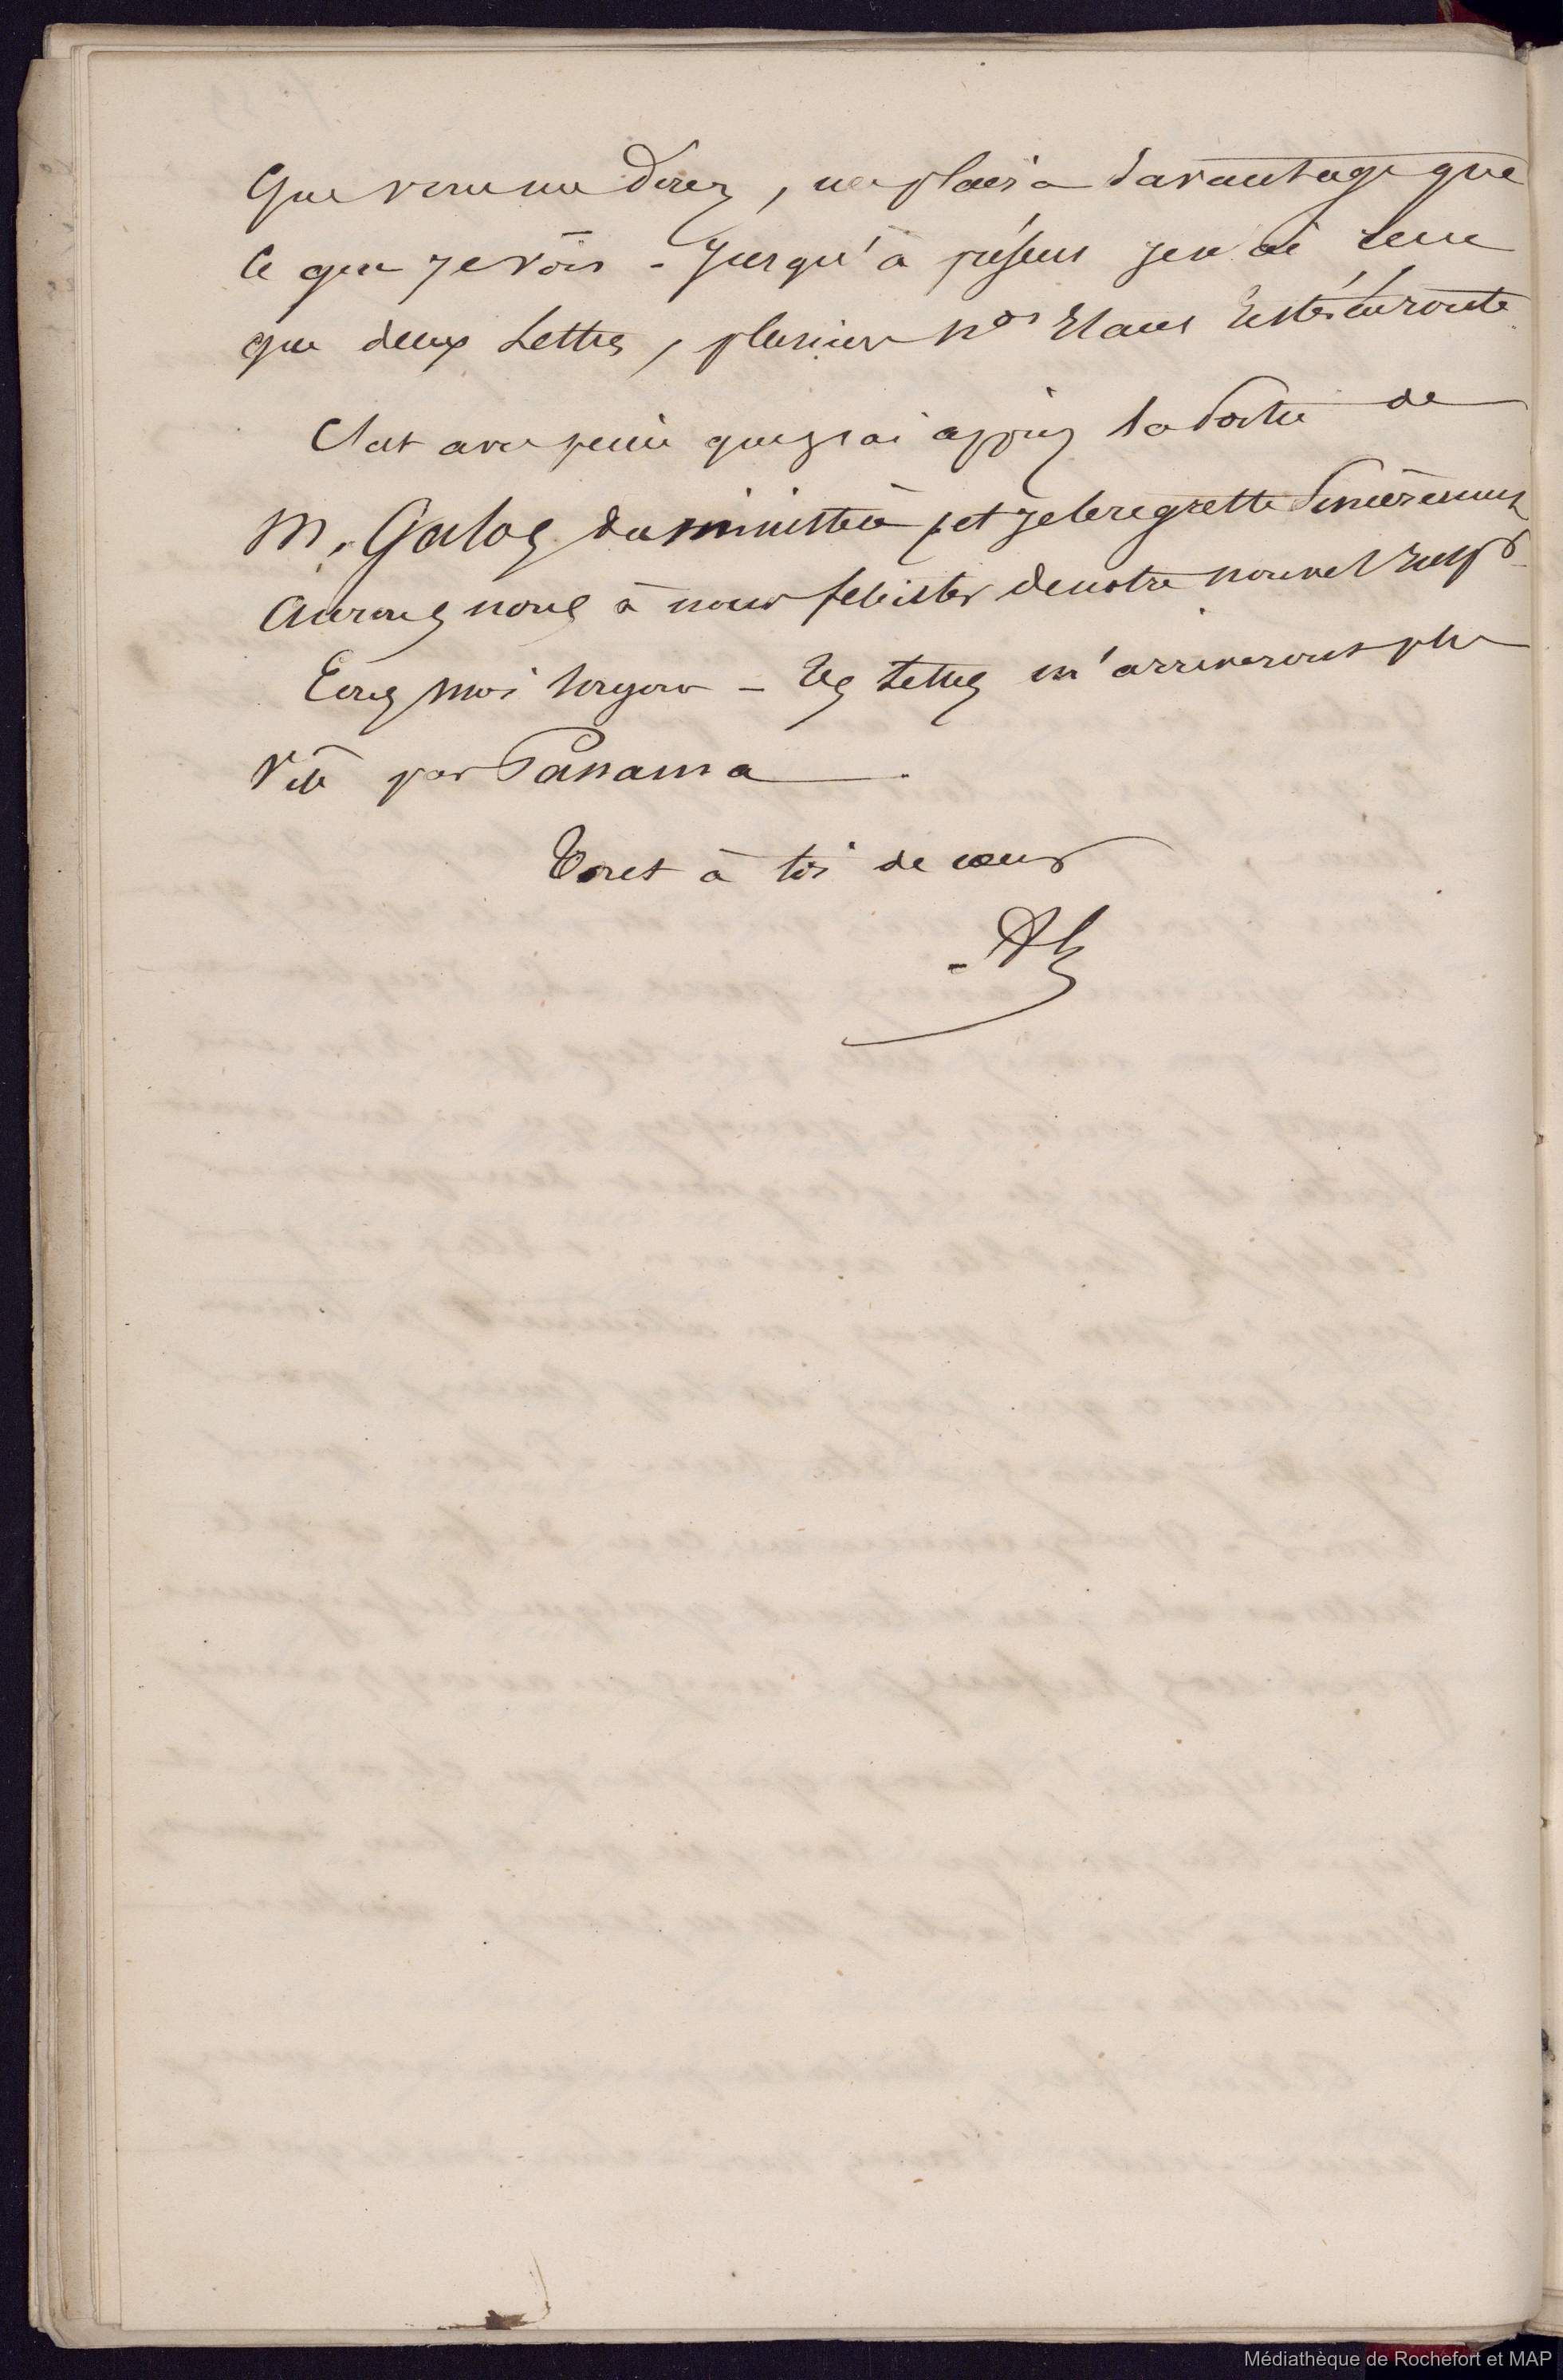 que vous me direz, me plaira davantage que
ce que je vois - Jusqu'à présent je n'ai reçu
que deux Lettres, plusieurs Nos étant restés en route
C'est avec peine que j'ai appris la sortie de
M. Galos du ministère, et je le regrette sincèrement
Aurons nous à nous feliciter de notre nouvel
Ecris moi toujours - tes Lettres m'arriveront plus
vite par Panama.
Tout à toi de coeur
Médiathèque de Rochefort et MAP